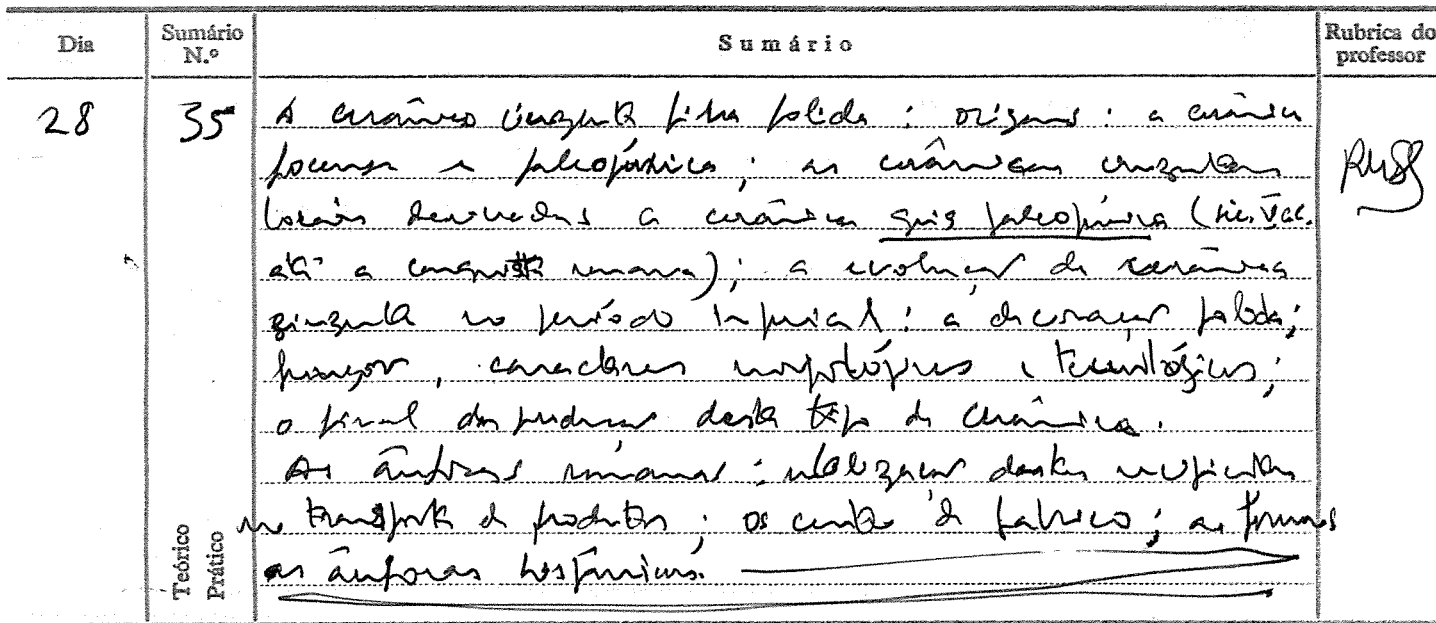 Dia
Sumário N.º
Sumário
Rubrica do professor
28
35
A cerâmica cinzenta fina polida: origens: a cerâmica
focense e paleopúnica; as cerâmicas cinzentas
locais derivadas a cerâmica gris paleopúnica (séc. V a.C.
até a conquista romana); a evolução da cerâmica
cinzenta no período imperial: a decoração polida;
funções, caracteres morfológicos e tecnológicos;
o final das deste tipo de cerâmica.
As ânforas romanas: utilização destes recipientes
no transporte de produtos; os centros de fabrico; as formas
as ânforas hispânicas.
Teórico
Prático